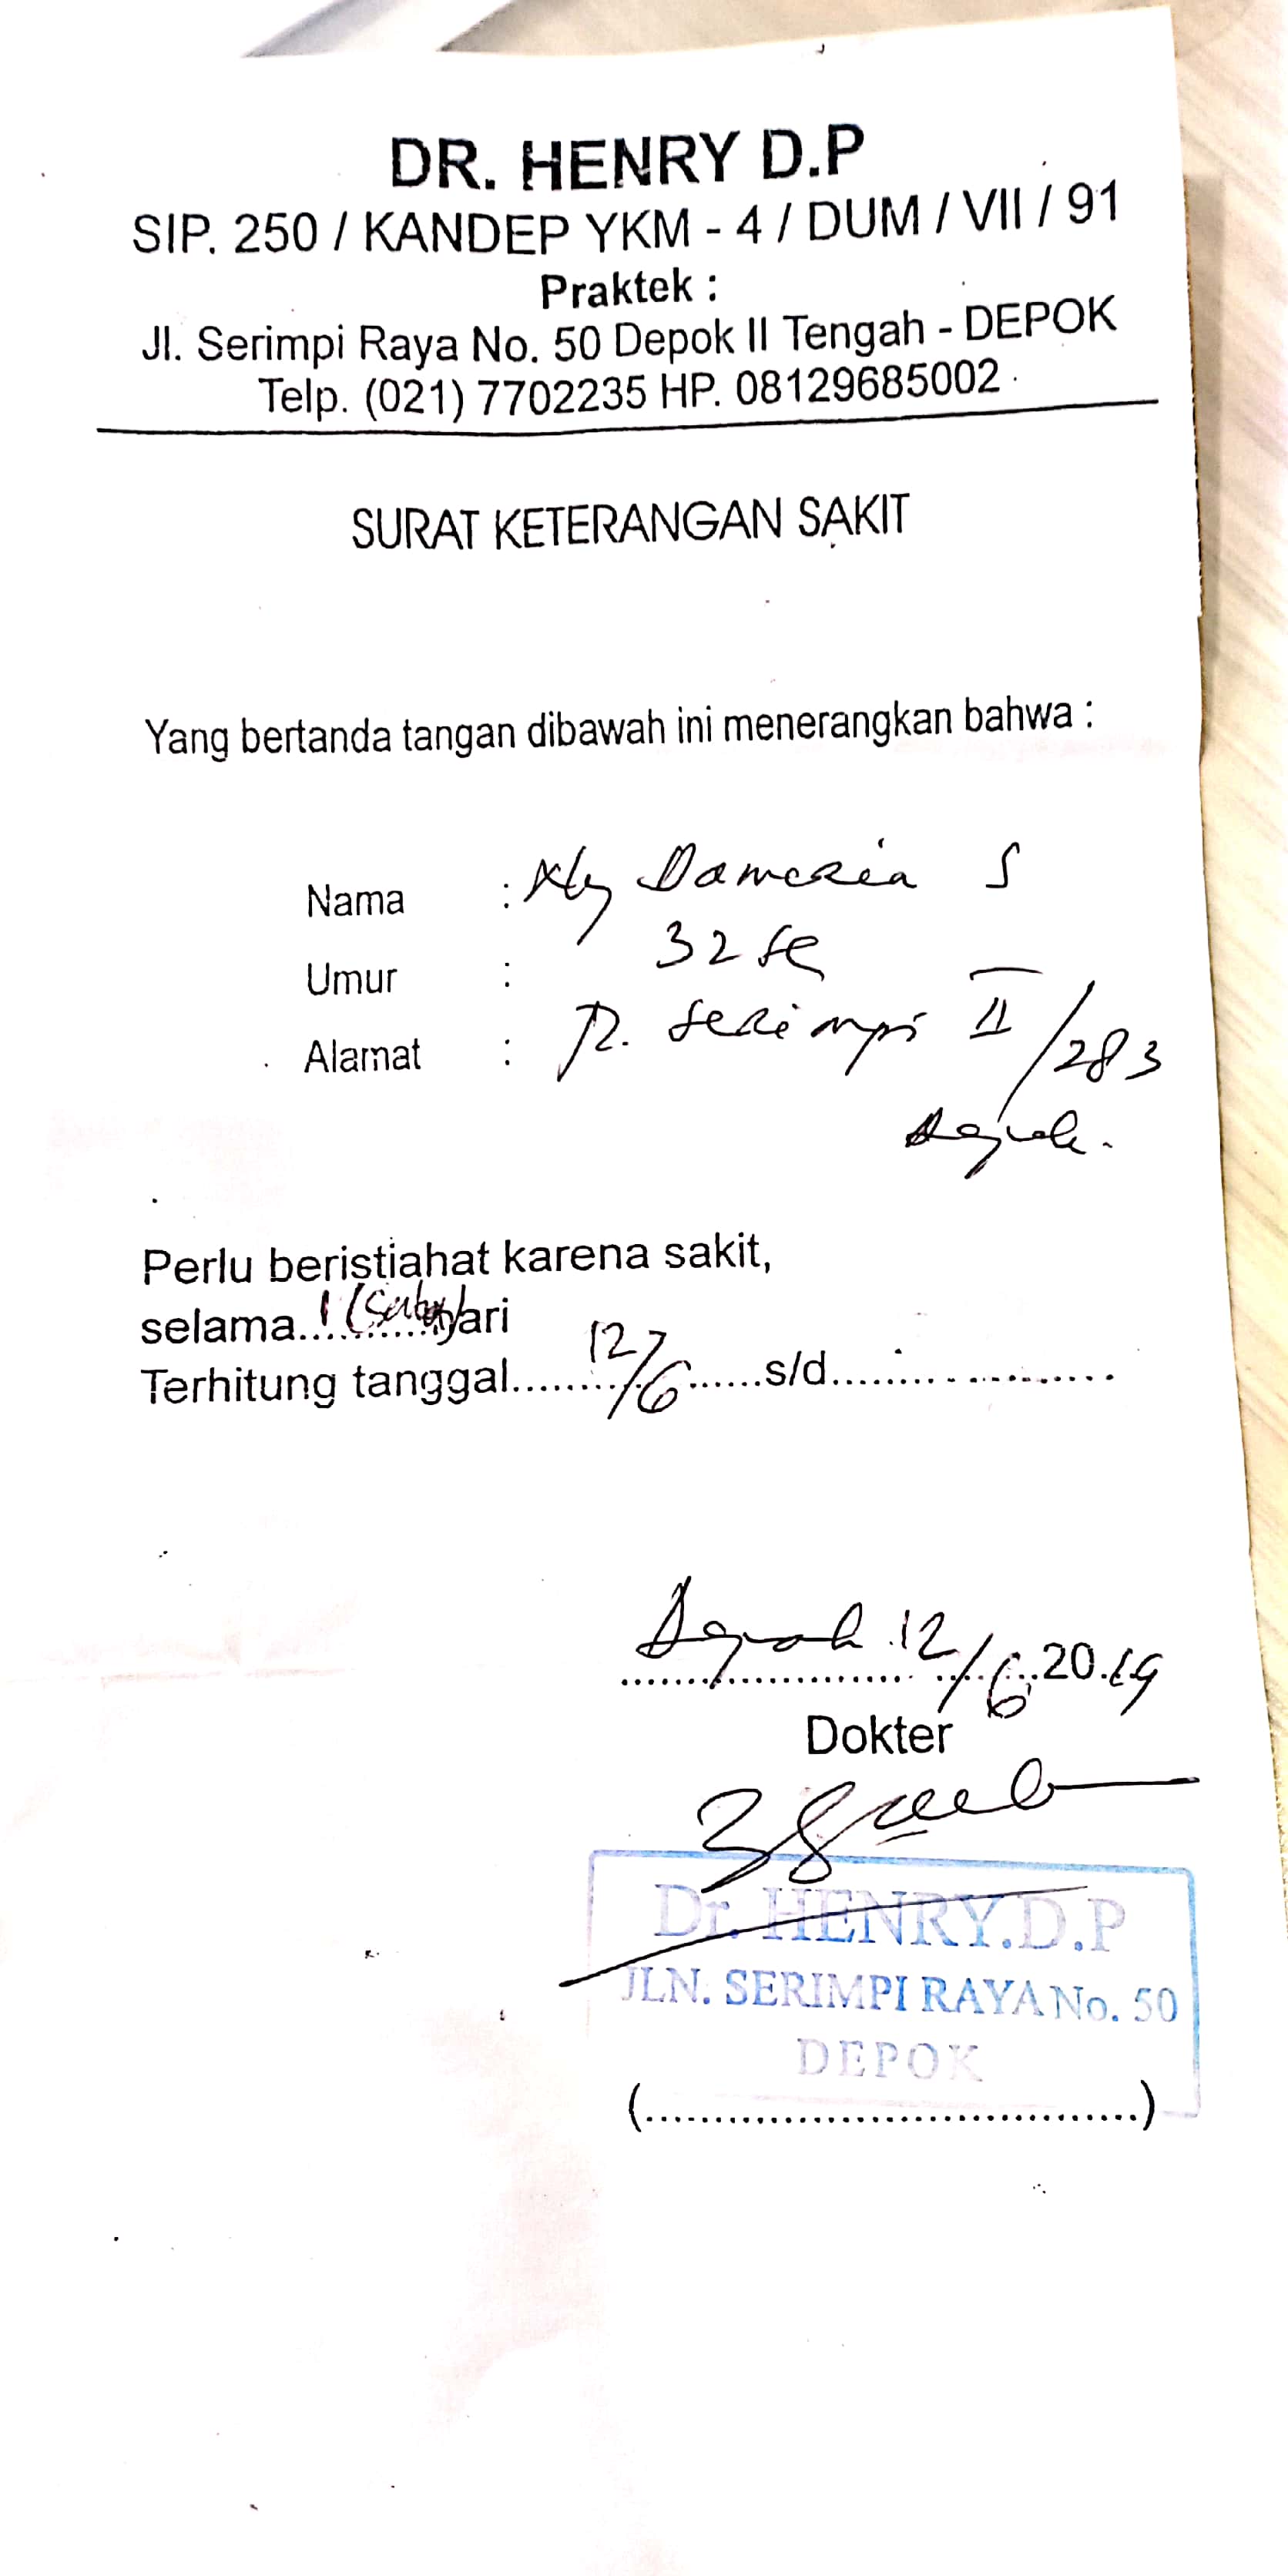 DR. HENRY D.P
SIP. 250 / KANDEP YKM - 4 / DUM / VII / 91
Praktek :
Jl. Serimpi Raya No. 50 Depok II Tengah - DEPOK
Telp. (021) 7702235 HP. 08129685002
SURAT KETERANGAN SAKIT
Yang bertanda tangan dibawah ini menerangkan bahwa :
Nama : Dameria S
Umur : 32
Alamat : Jl. Serimpi II / 283
Depok.
Perlu beristiahat karena sakit,
selama 1 (satu) hari
Terhitung tanggal........12/6......s/d....................
Depok 12/6 2019
Dokter
Dr. HENRY.D.P
JLN. SERIMPI RAYA No. 50
DEPOK
(....................................)